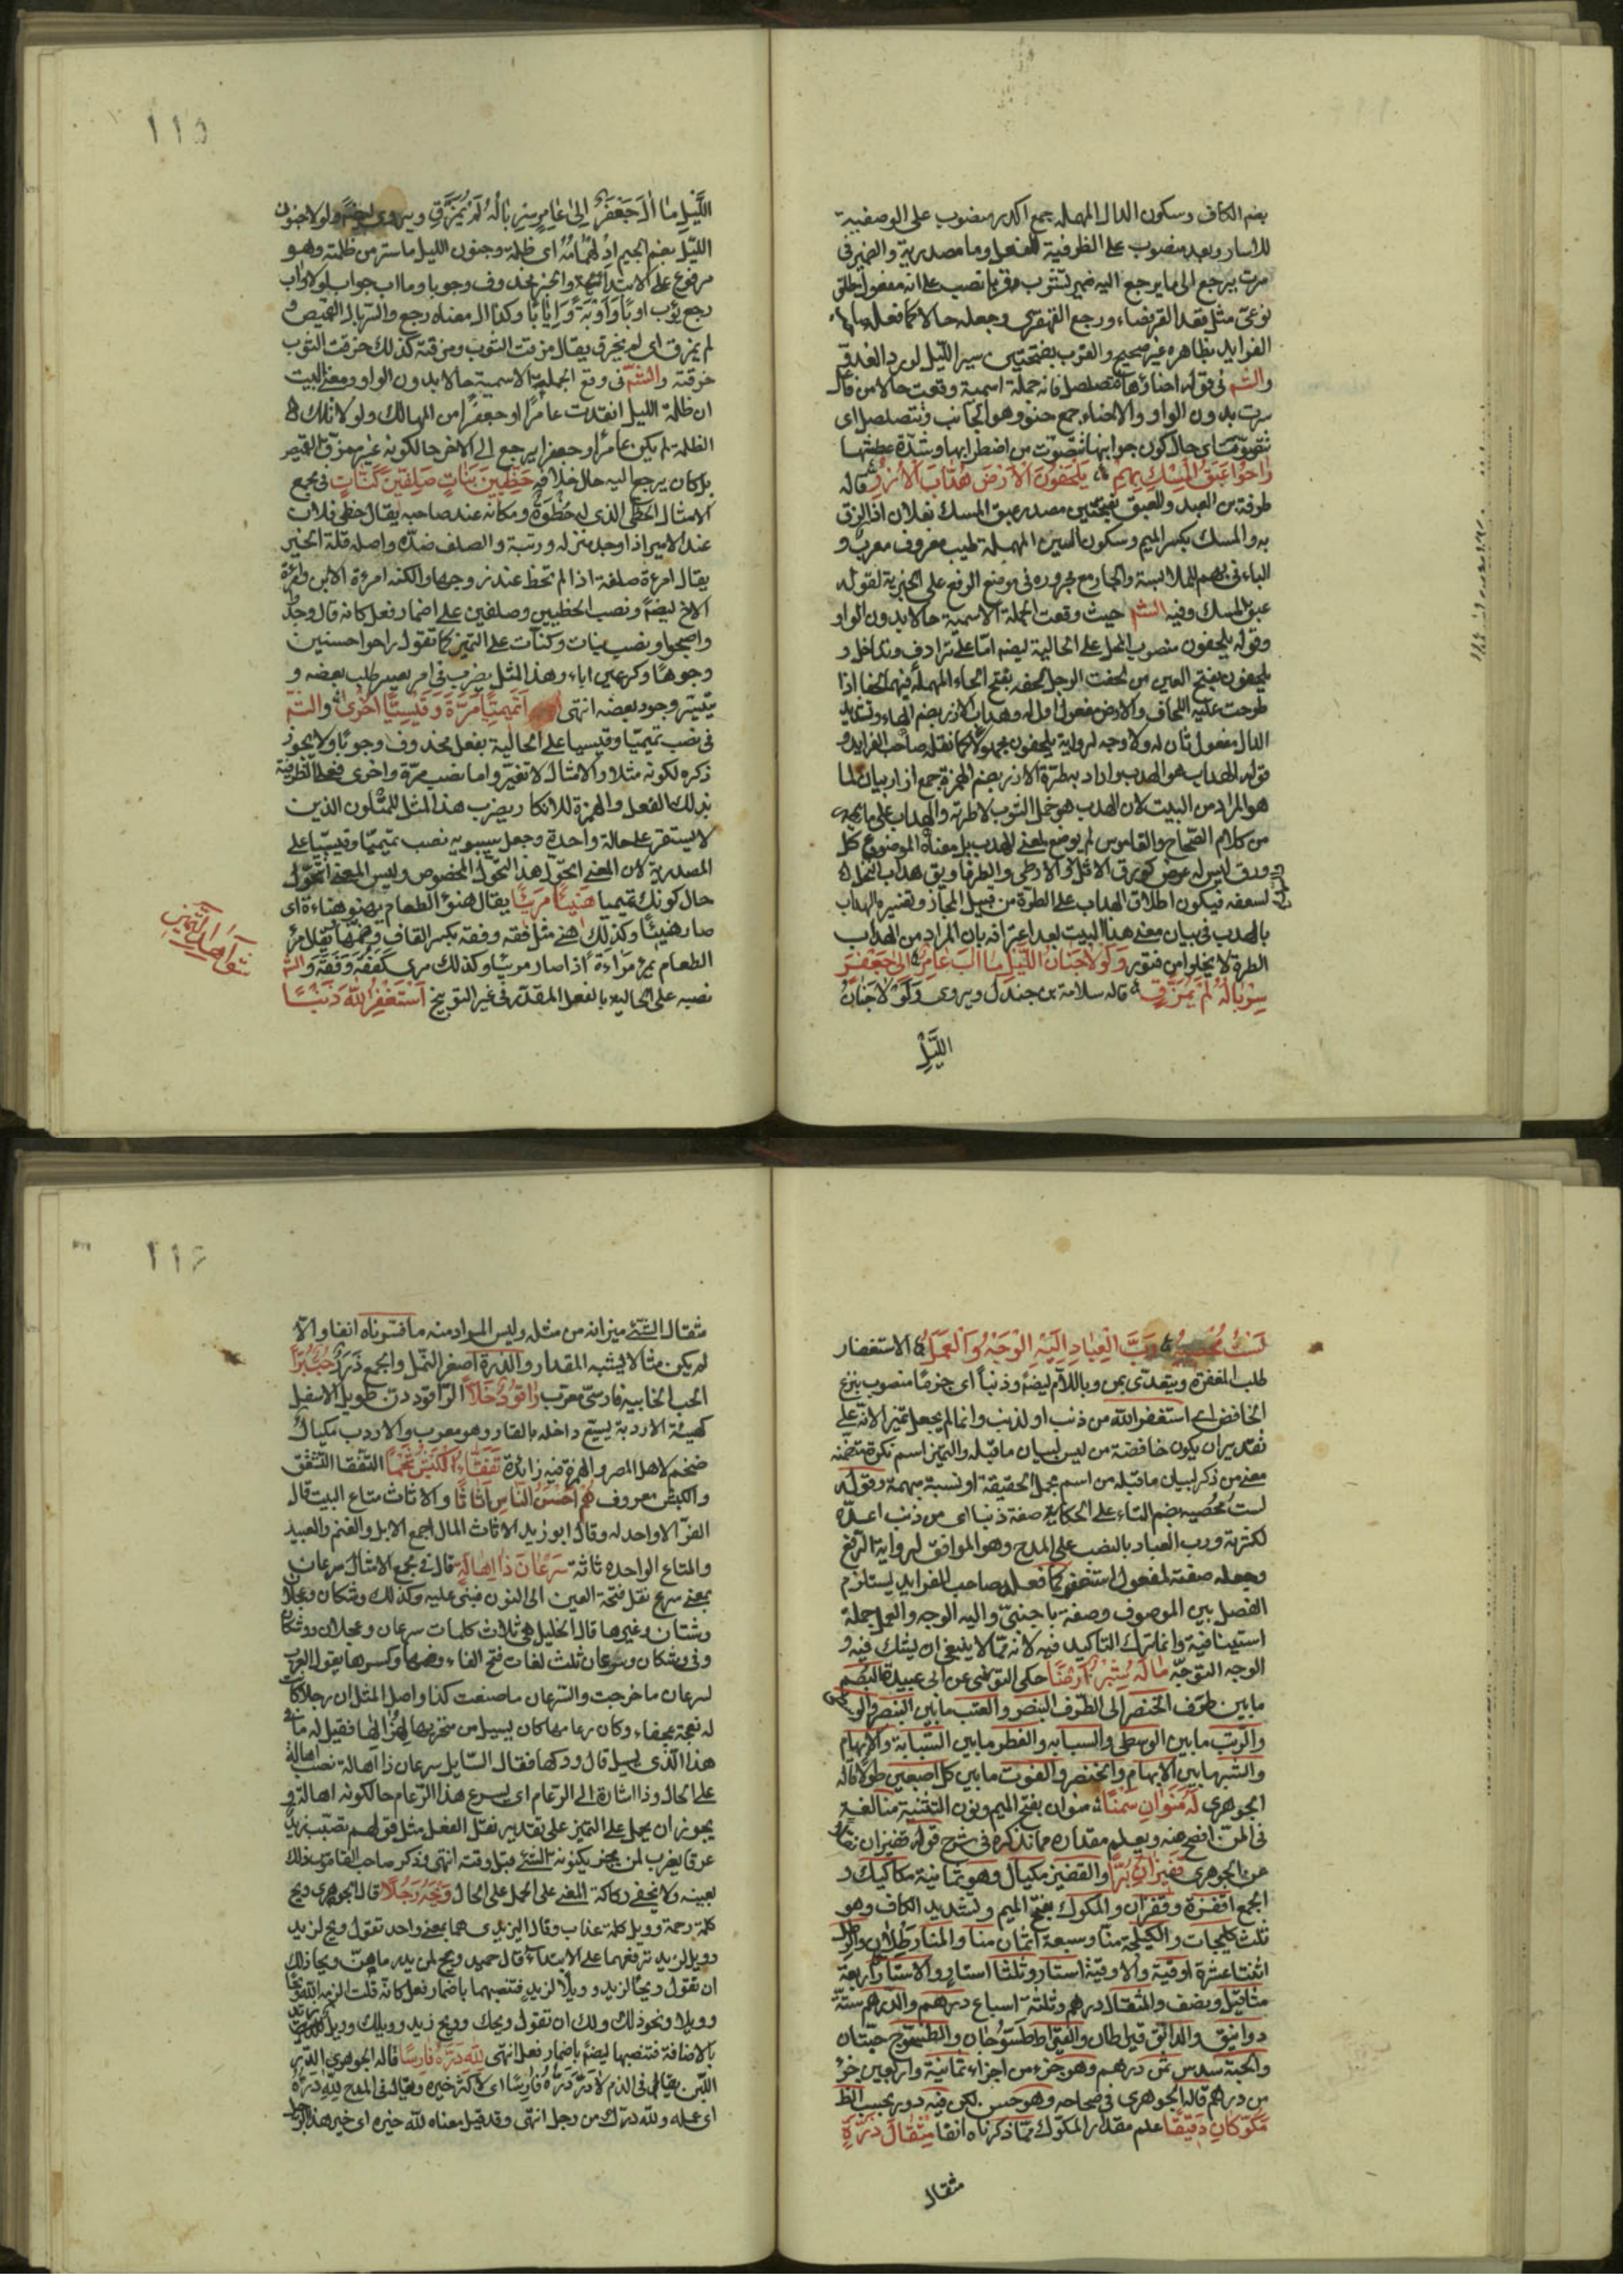 بضم الكاف وسكون الدال المهملة جمع اكدر منصوب على الوصفية
للاسار وبعد منصوب على الظرفية للفعل وما مصدرية والضمير في
سرت يرجع الى ما يرجع اليه ضمير لتشرب وقربا نصب على انه مفعول مطلق
نوعى مثل يقعد القرفصاء ورجع القهقرى وجعله حالا كما فعله صاحب
الفرايد بظاهره غير صحيح والقرب بفتحتين سير الليل لورد الغد في
والشم فى قوله احناؤها تتصلصل فانه جملة اسمية وقعت حالا من فاعل
سرت بدون الواو والاحناء جمع حنو وهو الجانب وتتصلصل اى
تصوت اى حال كون جوانبها تصوت من اضطرابها وشدة عطشها
راحوا عبق المسك بهم يلحفون الارض هداب الازر قاله
طرفة بن العبد والعبق بفتحتين مصدر عبق المسك بفلان اذا لزق
به والمسك بكسر الميم وسكون السين المهملة طيب معروف معرب و
الباء فى بهم للملابسة والجار مع مجروره فى موضع الرفع على الخبرية لقوله
عبق المسك وفيه الشم حيث وقعت الجملة الاسمية حالا بدون الواو
وقوله يلحفون منصوب المحل على الحالية ايضا اما على ترادف وتداخل و
يلحفون بفتح العين من لحفت الرجل الحفه بفتح الحاء المهملة فيهما لحفا اذا
طرحت عليه اللحاف والارض مفعول اول له وهداب الازر بضم الهاء وتشديد
الدال مفعول ثان له ولا وجه لرواية يلحفون مجهولا كما نقله صاحب الفرايد و
قوله الهداب هو الهدب واراد به طرة الازر بضم الهمزة جمع ازار بيان لما
هو المراد من البيت لان الهدب هو خمل الثوب لا طرته والهداب على ما يجئ
من كلام الصحاح والقاموس لم يوضع لمعنى الهدب بل معناه الموضوع كل
ورق ليس له عرض كورق الاثل والارطى والطرفا ويق هداب النخل
لسعفه فيكون اطلاق الهداب على الطرة من قبيل المجاز وتفسيره الهداب
بالهدب فى بيان معنى هذا البيت بعد اعترافه بان المراد من الهداب
الطرة لا يخلو من فتور ولولا جنان الليل ما آب عامر الى جعفر
سرباله لم يمزق قاله سلامة بن جندل ويروى ولولا جنان
الليل
١١٥
الليل ما آل جعفر الى عامر سرباله لم يمزق ويروى ايضا ولولا جنون
الليل بضم الجيم ادلهمامه اى ظلمة وجنون الليل ما ستر من ظلمته وهو
مرفوع على الابتدائية والخبر محذوف وجوبا وما آب جواب لولا وآب
رجع يؤب اوبا واوبة وايابا وكذا آل معناه رجع والسربال القميص و
لم يمزق اى لم يخرق يقال مزقت الثوب ومزقته كذلك خرقت الثوب
خرقته والشم فى وقع الجملة الاسمية حالا بدون الواو ومعنى البيت
ان ظلمة الليل انقذت عامرا او جعفرا من المهالك ولولا تلك
الظلمة لم يكن عامرا وجعفرا يرجع الى الآخر حال كونه غير ممزق القميص
بل كان يرجع اليه حال خلافه حظيين بنات صلفين كنات فى مجمع
الامثال الحظى الذى له حظوة ومكانة عند صاحبه يقال حظى فلان
عند الامير اذا وجد منزلة ورتبة والصلف ضده واصله قلة الخير
يقال امرءة صلفة اذا لم تحظ عند زوجها والكنة امرءة الابن وامرءة
الاخ ايضا ونصب الحظيين وصلفين على اضمار فعل كانه قال وجدوا
واصبحوا ونصب بنات وكنات على التميز كما تقول راحوا حسنين
وجوها وكريمين اباء وهذا المثل يضرب فى امر يعسر طلب بعضه و
يتيسر وجود بعضه انتهى اتميميا مرة وقيسيا اخرى والشم
فى نصب تميميا وقيسيا على الحالية بفعل محذوف وجوبا ولا يجوز
ذكره لكونه مثلا والامثال لا تغير واما نصب مرة واخرى فعلى الظرفية
بذلك الفعل والهمزة للانكار ويضرب هذا المثل للمتلون الذين
لا يستقر على حالة واحدة وجعل سيبويه نصب تميميا وقيسيا على
المصدرية لان المعنى اتحول هذا التحول المخصوص وليس المعنى اتحول
حال كونك تميميا هنيئا مريئا يقال هنؤ الطعام يهنو هناءة اى
صار هنيئا وكذلك هنئ مثل فقه وفقه بكسر القاف وضمها يقال مرؤ
الطعام يمرؤ مراءة اذا صار مريئا وكذلك مرئ كفقه وفقه والشم
نصبه على الحالية بالفعل المقدر فى غير التوبيخ استغفر الله ذنبا
شواهد التميز
لست محصيه رب العباد اليه الوجه والعمل الاستغفار
طلب المغفرة ويتعدى بمن وباللام ايضا وذنبا اى جرما منصوب بنزع
الخافض اى استغفر الله من ذنب او لذنب وانما لم يجعل تميزا لانه على
تقدير ان يكون خافضة من ليس لبيان ما قبله والتميز اسم نكرة متضمنة
معنى من ذكر لبيان ما قبله من اسم مجمل الحقيقة او نسبة مبهمة وقوله
لست محصيه بضم التاء على الحكاية صفة ذنبا اى من ذنب اعده
لكثرته ورب العباد بالنصب على المدح وهو الموافق لرواية الرفع
وجعله صفة لمفعول استغفر كما فعله صاحب الفرايد يستلزم
الفصل بين الموصوف وصفة باجنبى واليه الوجه والعمل جملة
استينافية وانما ترك التاكيد فيه لانه مما لا ينبغى ان يشك فيه و
الوجه التوجه ماله شبر ارضا حكى التوزى عن ابى عبيدة البصم
ما بين طرف الخنصر الى الطرف البنصر والعتب ما بين البنصر والوسطى
والرتب ما بين الوسطى والسبابه والفطر ما بين السبابة والابهام
والشبر ما بين الابهام والخنصر والفوت ما بين كل اصبعين طولا قاله
الجوهرى له منوان سمنا منوان بفتح الميم ونون التثنية منا لغة
فى المن افصح منه ويعلم مقداره مما نذكره فى شرح قوله قفيزان نقلا
عن الجوهرى قفيزان برا والقفيز مكيال وهو ثمانية مكاكيك و
الجمع اقفزة وقفزان والمكوك بفتح الميم وتشديد الكاف وهو
ثلث كيلجات والكيلجة منا وسبعة اثمان منا والمنا رطلان والرطل
اثنتا عشرة اوقية والاوقية استار وثلثا استار والاستار اربعة
مثاقيل ونصف والمثقال درهم وثلثة اسباع درهم والدرهم ستة
دوانيق والدانق قيراطان والقيراط طسوجان والطسوج حبتان
والحبة سدس ثمن درهم وهو جزء من اجزاء ثمانية واربعين جزء
من درهم قاله الجوهرى فى صحاحه وهو حسن لكن فيه دور بحسب الظ
مكوكان دقيقا علم مقدار المكوك مما ذكرناه انفا مثقال ذرة
مثقال
١١٦
مثقال الشئ ميزانه من مثله وليس المراد منه ما فسرناه انفا والا
لم يكن مثالا يشبه المقدار والذرة اصغر النمل والجمع ذر حب برا
الحب الخابية فارسى معرب راقود خلا الراقود دن طويل الاسفل
كهيئة الاردبة يسيع داخله بالقار وهو معرب والاردب مكيال
ضخم لاهل المصر والهمزة فيه زائدة تفقأ الكبش شحما التفقا التشقق
والكبش معروف هم احسن الناس اثاثا والاثاث متاع البيت قال
الفرا لا واحد له وقال ابو زيد الاثاث المال اجمع الابل والغنم والعبيد
والمتاع الواحدة اثاثة سرعان ذا اهالة قال فى مجمع الامثال سرعان
بمعنى سرع نقل فتحة العين الى النون فبنى عليه وكذلك وشكان وعجلان
وشتان وغيرها قال الخليل هى ثلاث كلمات سرعان وعجلان ووشكان
وفى وشكان وسرعان ثلث لغات فتح الفاء وضمها وكسرها يقول العرب
لسرعان ما خرجت والسرعان ما صنعت كذا واصل المثل ان رجلا كانت
له نعجة عجفاء وكان رعامها كان يسيل من منخريها لهزالها فقيل له ما
هذا الذى يسيل قال ودكها فقال السايل سرعان ذا اهالة نصب اهالة
على الحال وذا اشارة الى الرعام اى يسرع هذا الرعام حال كونه اهالة و
يجوز ان يحمل على التميز على تقدير نقل الفعل مثل قولهم تصبب زيد
عرقا يضرب لمن يخبر بكينونة الشئ قبل وقته انتهى وذكر صاحب القاموس ذلك
بعينه ولا يخفى ركاكة المعنى على الحمل على الحال ويحه رجلا قال الجوهرى ويح
كلمة رحمة وويل كلمة عذاب وقال اليزيدى هما بمعنى واحد تقول ويح لزيد
وويل لزيد ترفعهما على الابتداء قال حميد ويح لمن لم يدر ما هن ويحا ذلك
ان تقول ويحا لزيد وويلا لزيد فتنصبهما باضمار فعل كانه قلت الزمه الله ويحا
وويلا ونحو ذلك ولك ان تقول ويحك وويح زيد وويلك وويل زيد
بالاضافة فتنصبها ايضا باضمار فعل انتهى لله دره فارسا قاله الجوهرى الدر
اللبن يقال فى الذم لا در دره فارسا اى لا كثر خيره ويقال فى المدح لله دره
اى عمله ولله درك من رجل انتهى وقد قيل معناه لله خيره اى خير هذا الرجل